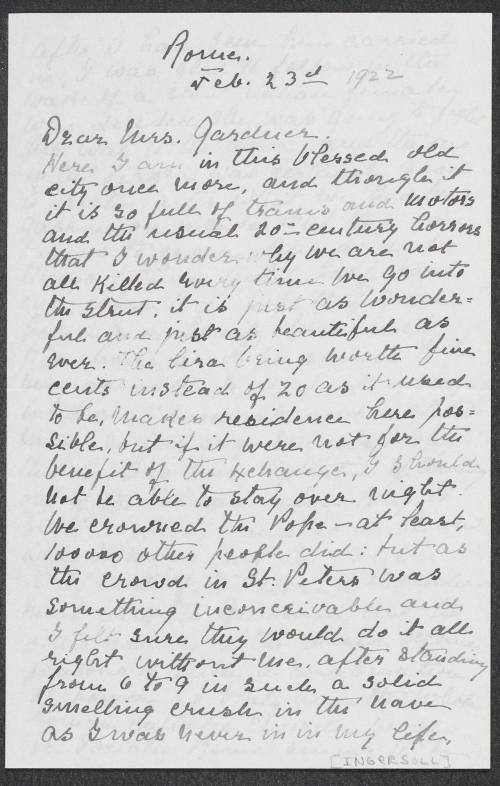 Rome.
Feb. 23d 1922
Dear Mrs. Gardner.
Here I am in this blessed old
city once more, and though it
it is so full of trams and motors
and the usual 20=century horrors
that I wonder why we are not
all killed every time we go into
the street, it is just as wonder=
ful and just as beautiful as
ever. The lira being worth five
cents instead of 20 as it used
to be, makes residence here pos=
sible, but if it were not for the
benefit of the exchange, I should
not be able to stay over night.
We crowned the Pope – at least,
100000 other people did: but as
the crowd in St. Peters was
something inconceivable and
I felt sure they would do it all
right without me, after standing
from 6 to 9 in such a solid
smelling crush in the nave
as I was never in in my life,
[INGERSOLL]